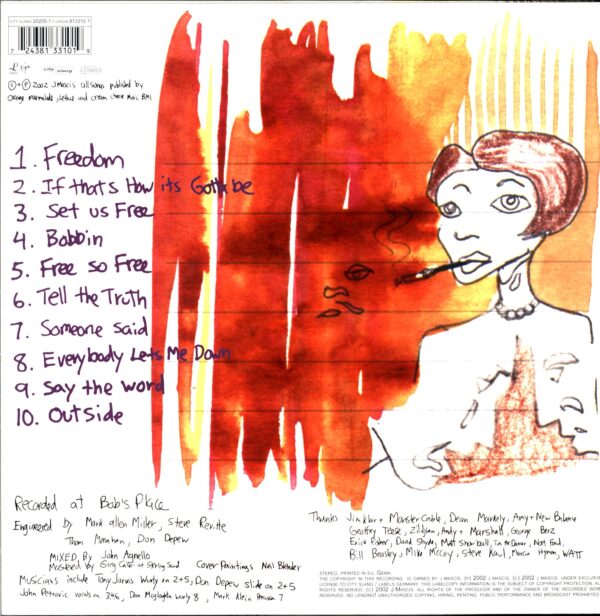 CITY SLANG 20205-1 / VIRGIN 813310 1
7 24381 33101 9
© + ℗ 2002 J Mascis all songs published by
Orange Marmalade, Lettuce and cream cheese Music BMI
1. Freedom
2. If thats How its Gotta be
3. Set us Free
4. Bobbin
5. Free so Free
6. Tell the Truth
7. Someone said
8. Everybody Lets Me Down
9. Say the word
10. Outside
Recorded at Bob's Place
Engineered by Mark Allen Miller, Steve Revitte
Thom Monahan, Don Depew
MIXED By John Agnello
Mastered by Greg Calbi at Sterling Sound Cover Paintings Neil Blender
Musicians include Tony Jarvis Wurly on 2+5, Don Depew slide on 2+5
John Petrovic vocals on 3+6, Don wurly 8, Mark Klein House 7
Thanks Jim Klar + Monster Cable, Dean Markely, Amy + New Balance
Geoffrey Teese, Zildjian, Andy + Marshall, George Berz
Erick Fisher, David Snyder, Matt Snow Ball, Tim the Owner, Nat Ford,
Bill Beasley, Mike McCoy, Steve Raul, Marcia Hyman, WATT
STEREO, PRINTED IN EU, GEMA.
THE COPYRIGHT IN THIS RECORDING IS OWNED BY J MASCIS. (P) 2002 J MASCIS. (C) 2002 J MASCIS. UNDER EXCLUSIVE
LICENSE TO CITY SLANG LABELS GERMANY. THIS LABELCOPY INFORMATION IS THE SUBJECT OF COPYRIGHT PROTECTION.
(C) 2002 J MASCIS. ALL RIGHTS OF THE PRODUCER AND OF THE OWNER OF THE RECORDED WORK
RESERVED. NO LENDING/ UNAUTHORIZED COPYING, HIRING, RENTING, PUBLIC PERFORMANCE AND BROADCAST PROHIBITED.